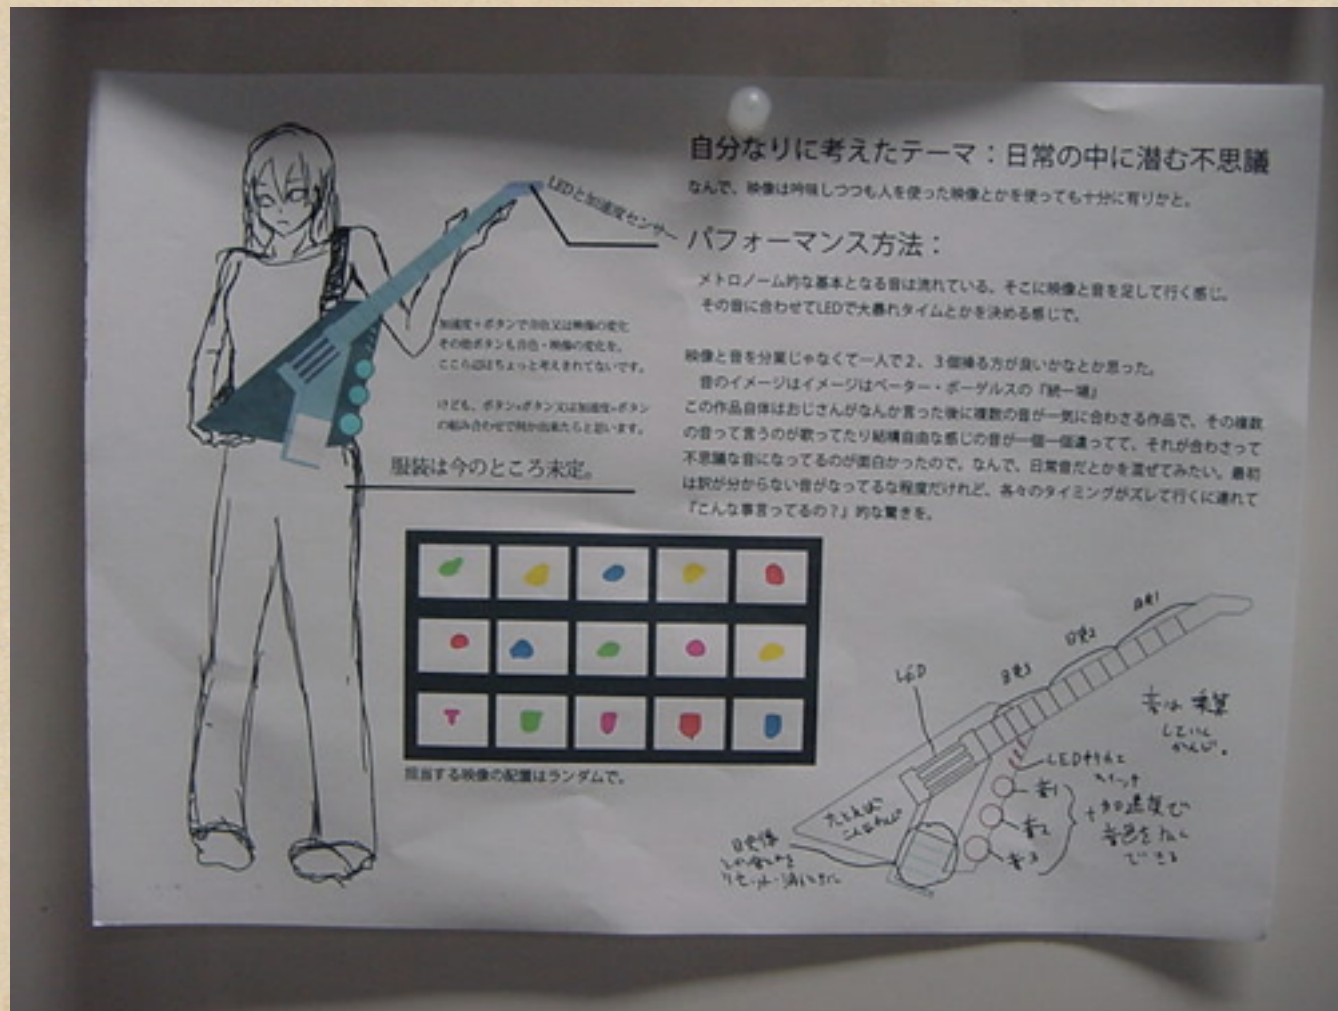 自分なりに考えたテーマ：日常の中に潜む不思議
なんで、映像は吟味しつつも人を使った映像とかを使っても十分に有りかと。
パフォーマンス方法：
メトロノーム的な基本となる音は流れている、そこに映像と音を足して行く感じ。
その音に合わせてLEDで大暴れタイムとかを決める感じで。
映像と音を分業じゃなくて一人で２、３個操る方が良いかなとか思った。
音のイメージはイメージはペーター・ボーゲルスの『統一場』
この作品自体はおじさんがなんか言った後に複数の音が一気に合わさる作品で、その複数
の音って言うのが歌ってたり結構自由な感じの音が一個一個違ってて、それが合わさって
不思議な音になってるのが面白かったので。なんで、日常音だとかを混ぜてみたい。最初
は訳が分からない音がなってるな程度だけれど、各々のタイミングがズレて行くに連れて
『こんな事言ってるの？』的な驚きを。
LEDと加速度センサー
加速度＋ボタンで音色又は映像の変化
その他ボタンも音色・映像の変化を。
ここら辺はちょっと考えきれてないです。
けども、ボタン+ボタン又は加速度+ボタン
の組み合わせで何か出来たらと思います。
服装は今のところ未定。
担当する映像の配置はランダムで。
映1
映2
映3
LED
音は
かんじ。
LED
音1
音2
音3
＋加速度で
音色を
できる
たとえば
こんなかんじ
映像
リセット